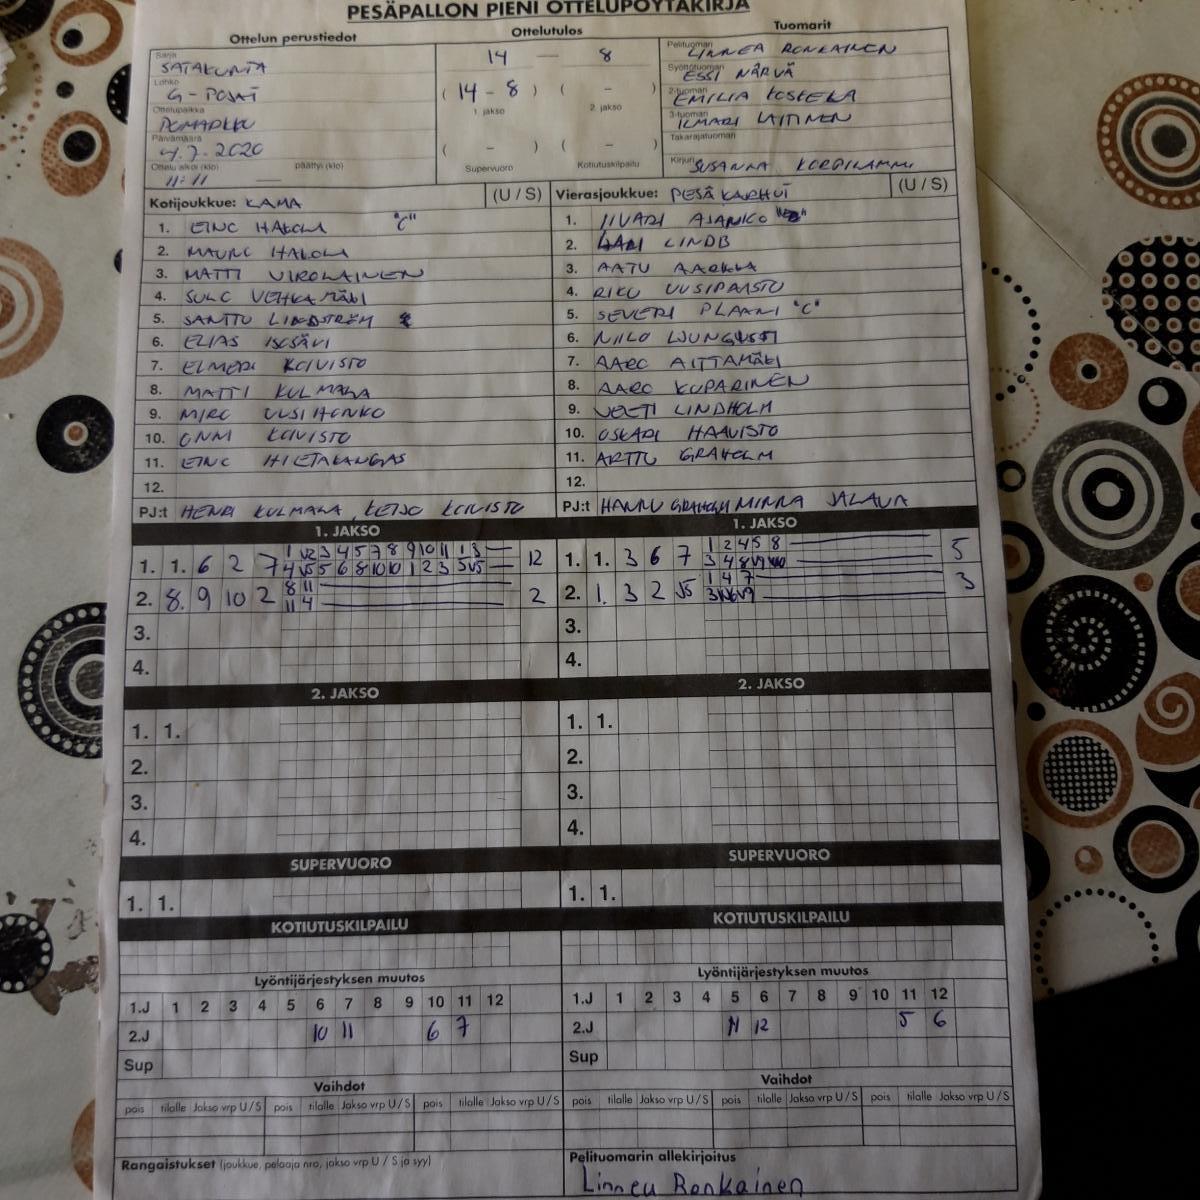 PESÄPALLON PIENI OTTELUPÖYTÄKIRJA
Ottelun perustiedot
Sarja
SATAKUNTA
Lohko
G-POJAT
Ottelupaikka
POMARKKU
Päivämäärä
4.7.2020
Ottelu alkoi (klo) päättyi (klo)
11:11
Ottelutulos
14 — 8
( 14 - 8 ) ( - )
1. jakso 2. jakso
( - ) ( - )
Supervuoro Kotiutuskilpailu
Tuomarit
Pelituomari
LINNEA RONKAINEN
Syöttötuomari
ESSI NÄRVÄ
2-tuomari
EMILIA KOSKELA
3-tuomari
ILMARI LAITINEN
Takarajatuomari
Kirjuri
SUSANNA KORPILAMMI
Kotijoukkue: KAMA (U / S)
1. EINO HALOLA "C"
2. MAUNO HALOLA
3. MATTI VIROLAINEN
4. SULO VEHKAMÄKI
5. SANTTU LINDSTRÖM
6. ELIAS ISOSÄVI
7. ELMERI KOIVISTO
8. MATTI KULMALA
9. MIRO UUSIHONKO
10. ONNI KOIVISTO
11. EINO HIETAKANGAS
12.
PJ:t HENRI KULMALA, KEIJO KOIVISTO
Vierasjoukkue: PESÄKARHUT (U / S)
1. IIVARI AJANKO
2. LINDB
3. AATU AARKKA
4. RIKU UUSIPAASTO
5. SEVERI PLAAMI "C"
6. NIILO LJUNGQVIST
7. AARO AITTAMÄKI
8. AARO KUPARINEN
9. VEETI LINDHOLM
10. OSKARI HAAVISTO
11. ARTTU GRAHOLM
12.
PJ:t HANNU GRAHOLM MINNA JALAVA
1. JAKSO
1. 1. 6 2 7 12
2. 8. 9 10 2 8 11 2
11 4
3.
4.
1. JAKSO
1. 1. 3 6 7 1 2 4 5 8 5
2. 1. 3 2 1 4 7 3
3.
4.
2. JAKSO
1. 1.
2.
3.
4.
2. JAKSO
1. 1.
2.
3.
4.
SUPERVUORO
1. 1.
SUPERVUORO
1. 1.
KOTIUTUSKILPAILU
KOTIUTUSKILPAILU
Lyöntijärjestyksen muutos
1.J 1 2 3 4 5 6 7 8 9 10 11 12
2.J 10 11 6 7
Sup
Lyöntijärjestyksen muutos
1.J 1 2 3 4 5 6 7 8 9 10 11 12
2.J 11 12 5 6
Sup
Vaihdot
pois tilalle Jakso vrp U / S pois tilalle Jakso vrp U / S pois tilalle Jakso vrp U / S
Vaihdot
pois tilalle Jakso vrp U / S pois tilalle Jakso vrp U / S pois tilalle Jakso vrp U / S
Rangaistukset (joukkue, pelaaja nro, jakso vrp U / S ja syy)
Pelituomarin allekirjoitus
Linnea Ronkainen